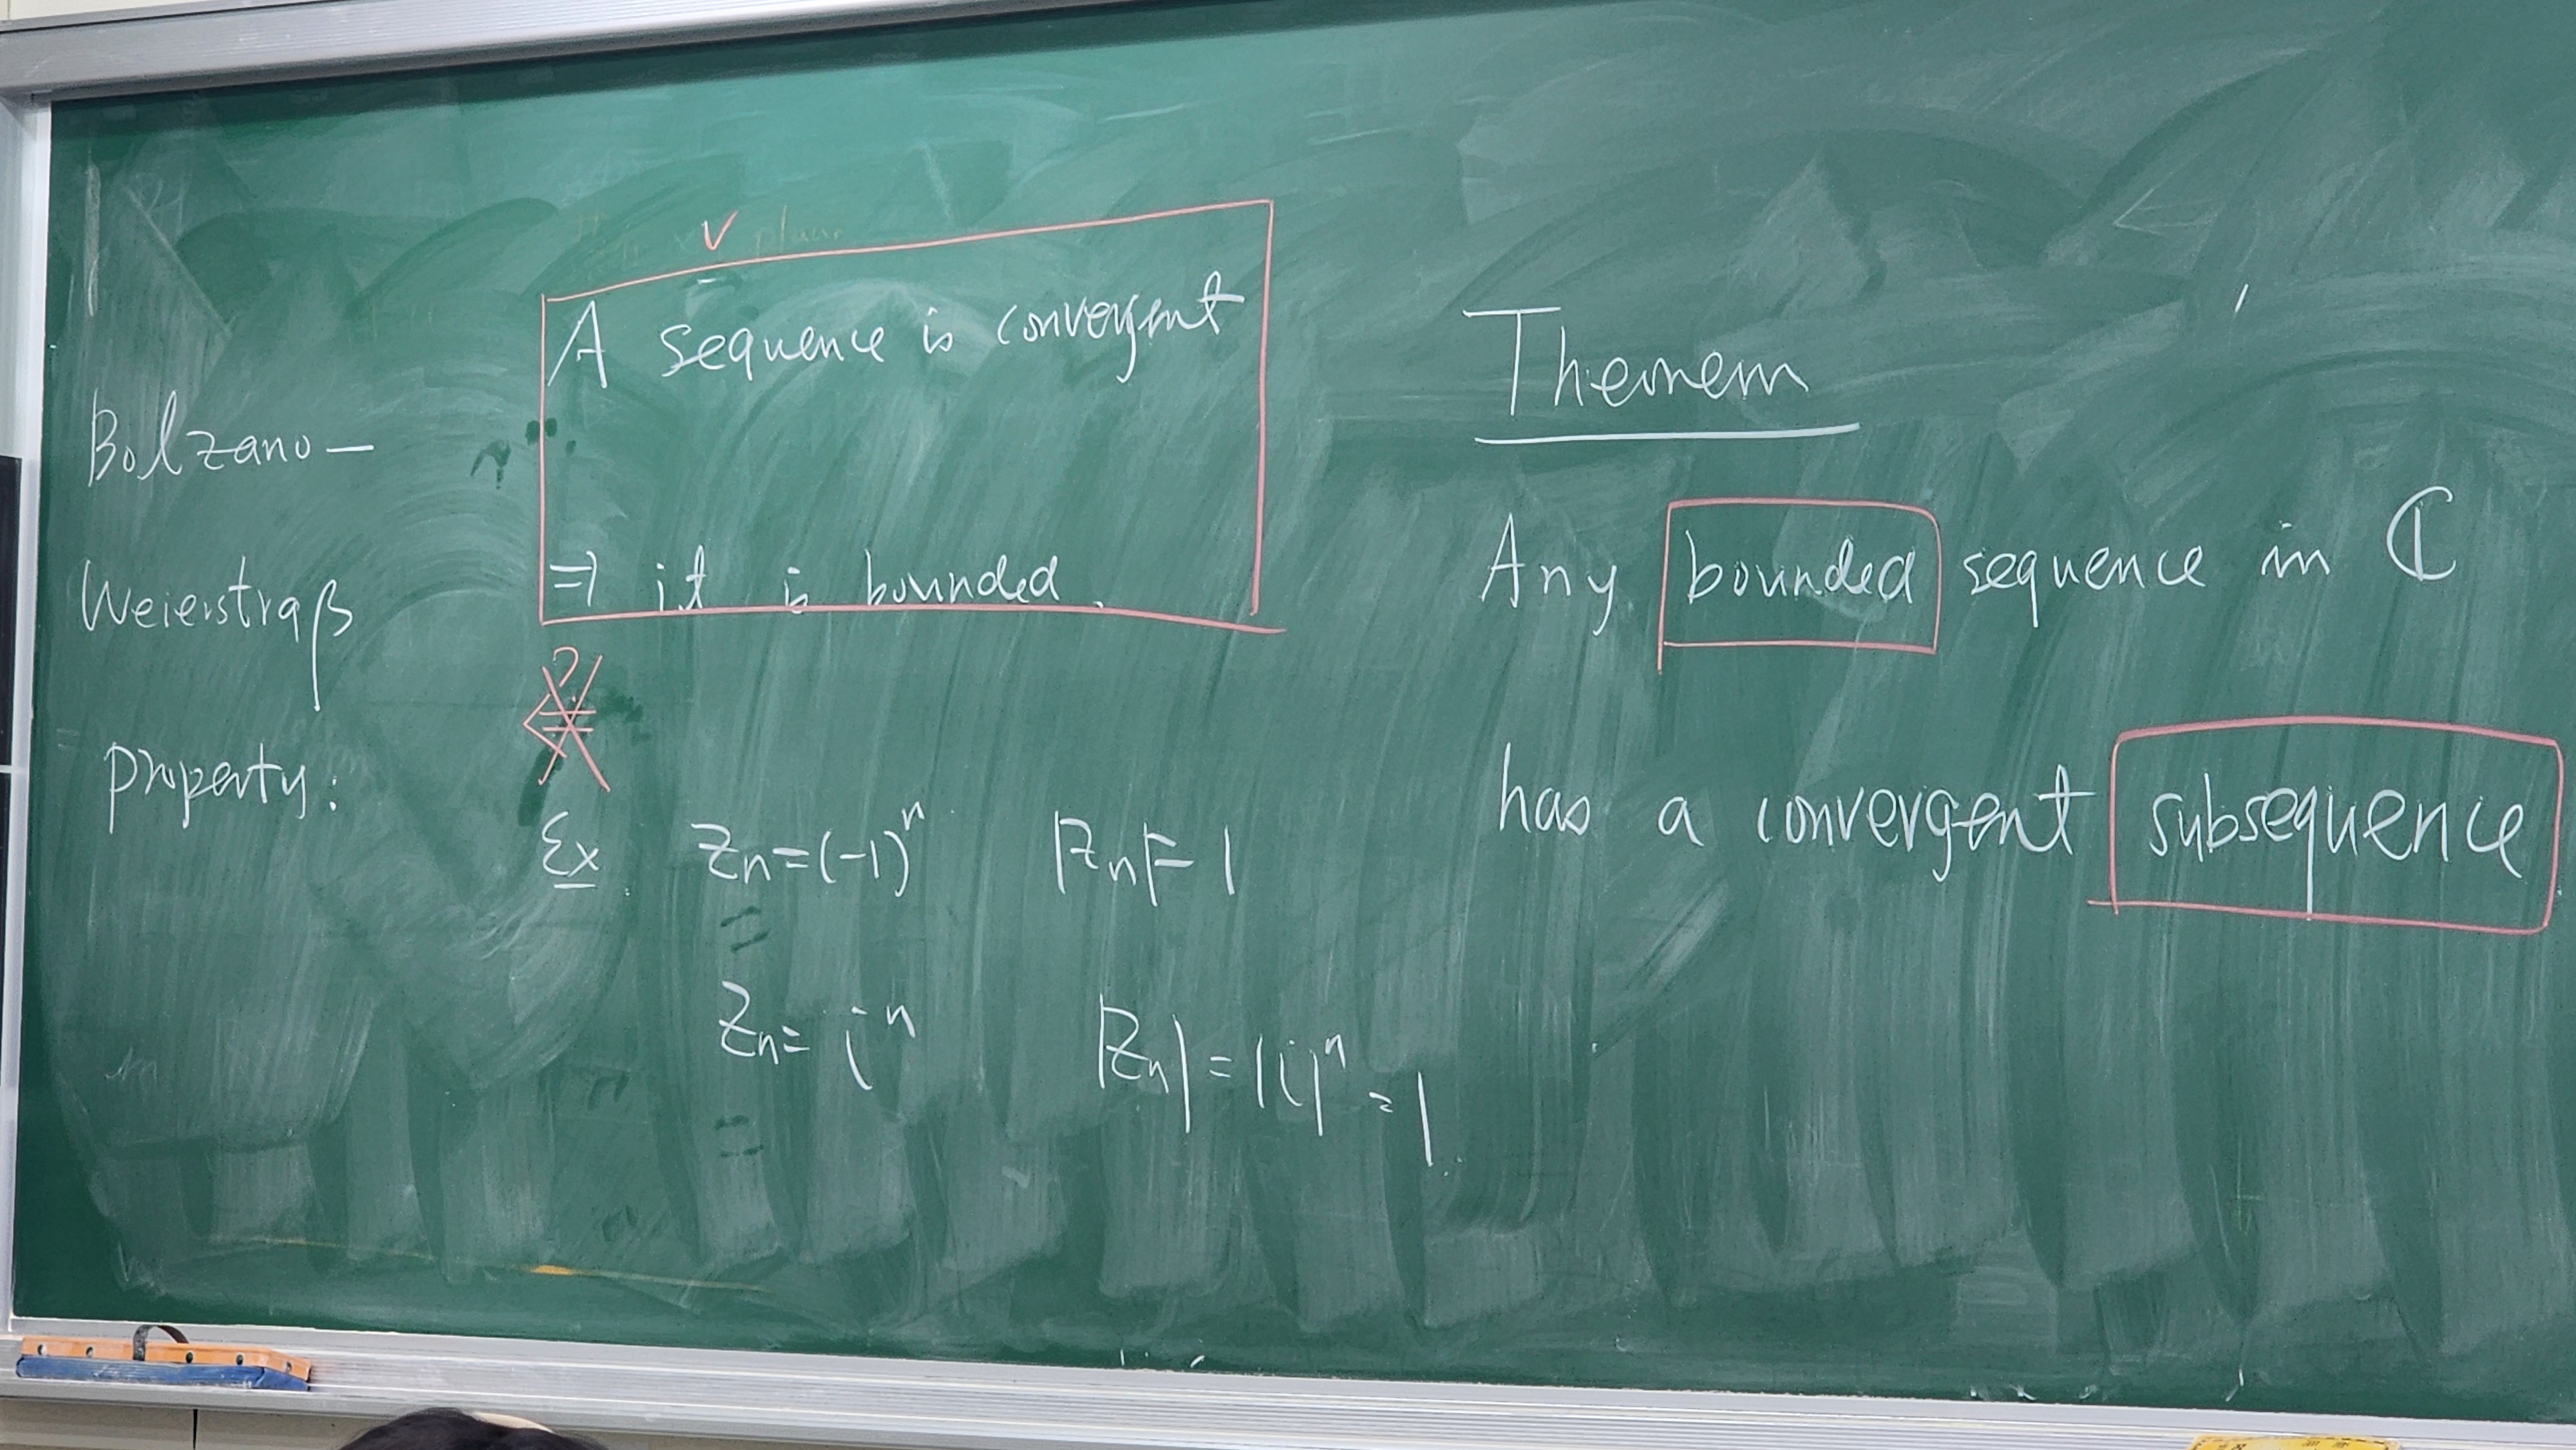 Bolzano –
Weierstraß
Property:
A sequence is convergent
⇒ it is bounded.
?
⇐
Ex. Zn = (-1)^n |Zn| = 1
Zn = i^n |Zn| = |i|^n = 1.
Theorem
Any bounded sequence in ℂ
has a convergent subsequence